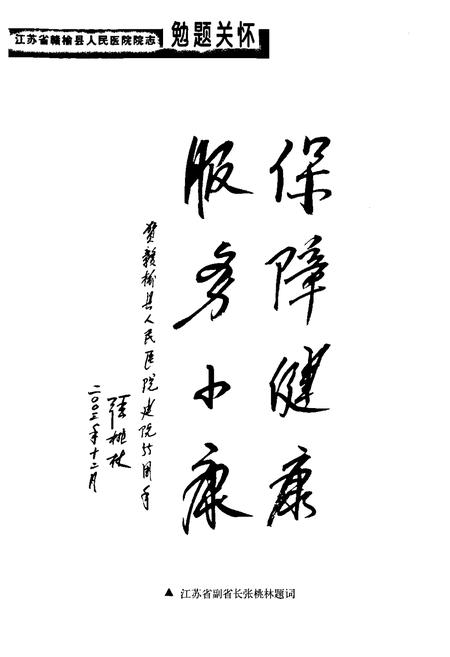 江苏省赣榆县人民医院院志 勉题关怀
保障健康
服务小康
贺赣榆县人民医院建院55周年
张桃林
二〇〇三年十二月
▲ 江苏省副省长张桃林题词